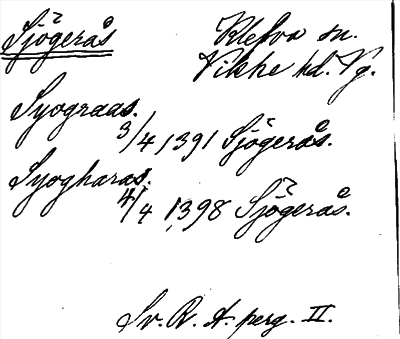 Sjögerås
Klefva sn.
Vilske hd. Vg.
Syograas.
3/4 1391 Sjögerås.
Syogharas.
4/4 1398 Sjögerås.
Sv. R. A. perg. II.